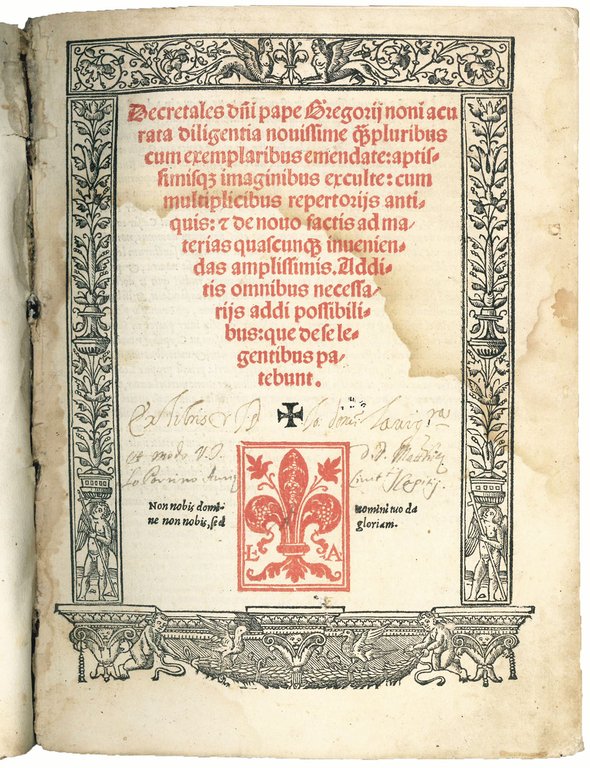 Decretales dñi pape Gregorij noni acu
rata diligentia nouissime q̃pluribus
cum exemplaribus emendate: aptis-
simisqꝫ imaginibus exculte: cum
multiplicibus repertorijs anti-
quis: ⁊ de nouo factis ad ma-
terias quascunqꝫ inuenien-
das amplissimis. Addi-
tis omnibus necessa-
rijs addi possibili-
bus: que de se le-
gentibus pa-
tebunt.
Ex libris
et modo
Non nobis domi-
ne non nobis, sed
nomini tuo da
gloriam.
L. A